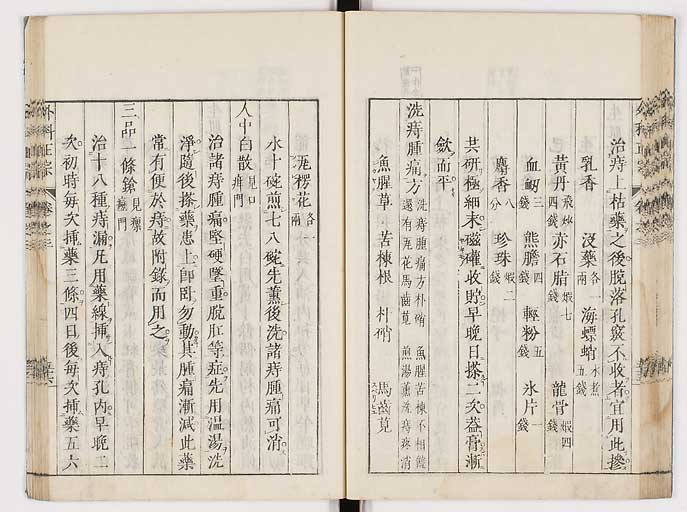 治痔上枯藥之後脫落孔竅不收者宜用此摻
乳香 沒藥各一兩 海螵蛸水煮五錢
黃丹飛炒四錢 赤石脂煅七錢 龍骨煅四錢
血竭三錢 熊膽四錢 輕粉五錢 氷片一錢
麝香八分 珍珠煅二錢
共研極細末磁罐收貯早晚日搽二次蓋膏漸
斂而平
洗痔腫痛方 洗痔腫痛方朴硝 魚腥苦楝不相饒
還有瓦花馬齒莧 煎湯薰洗痔疼消
魚腥草 苦楝根 朴硝 馬齒莧
瓦楞花各一兩
水十碗煎七八碗先薰後洗諸痔腫痛可消
人中白散見口疳門
治諸痔腫痛堅硬墜重脫肛等症先用溫湯洗
淨隨後搽藥患上即臥勿動其腫痛漸減此藥
常有便於痔故附錄而用之
三品一條鎗見瘰癧門
治十八種痔漏凡用藥線插入痔孔內早晚二
次初時每次插藥三條四日後每次插藥五六
外科正宗
卷之三